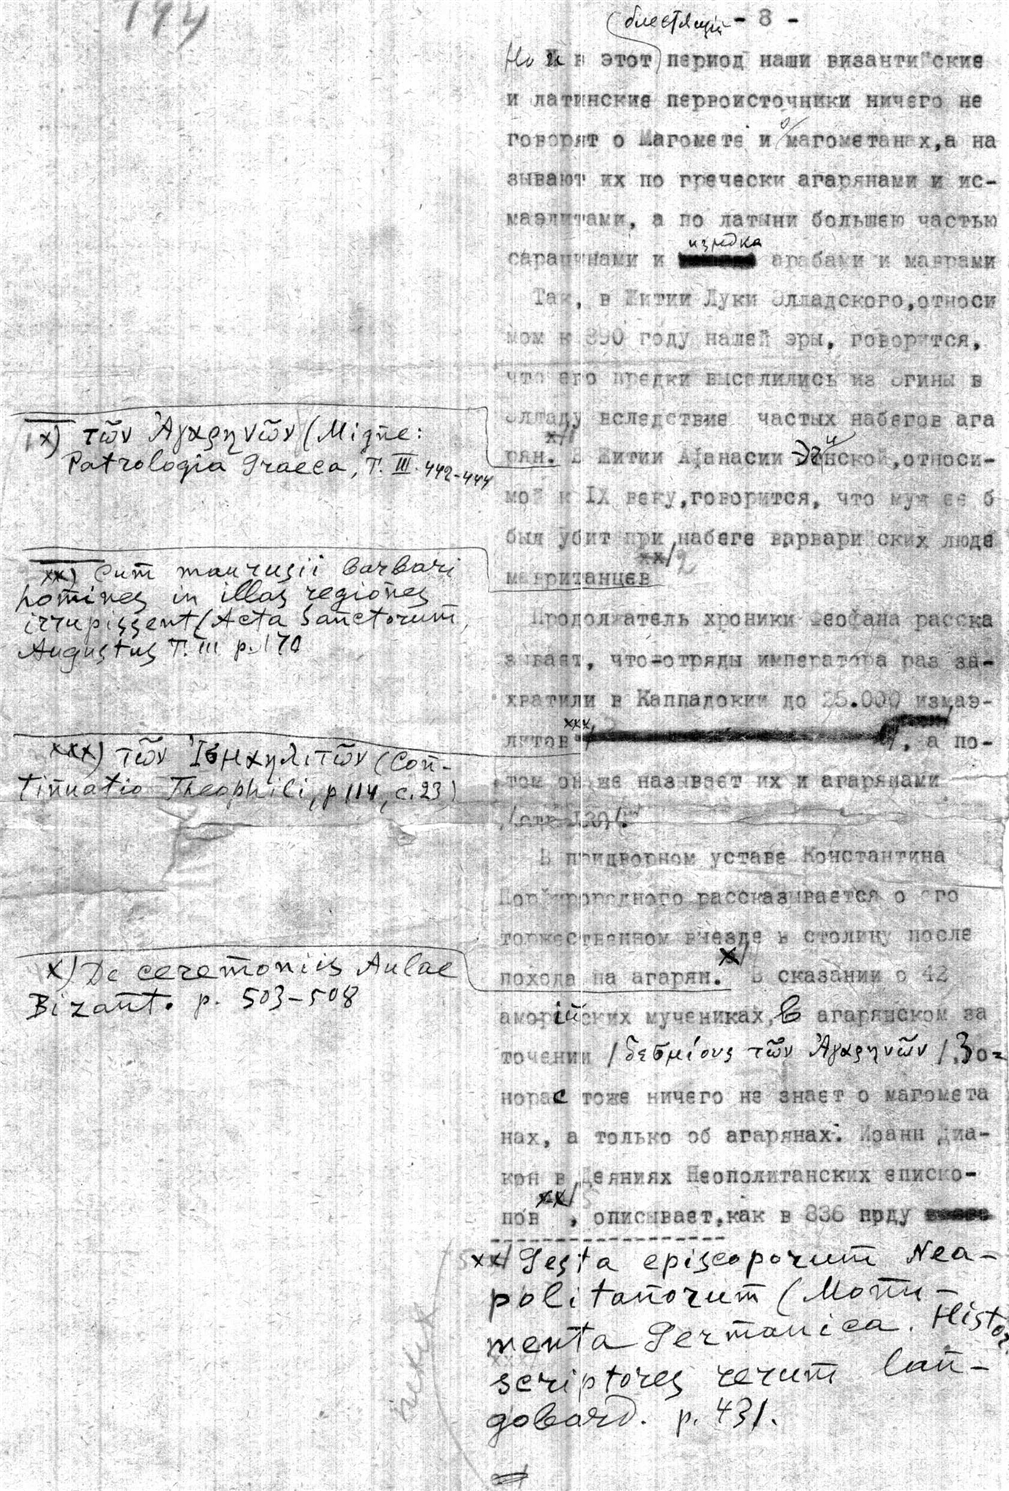 194
(блестящий - 8 -
Но и в этот период наши византийские
и латинские первоисточники ничего не
говорят о Магомете и о магометанах,а на
зывают их по гречески агарянами и ис-
маэлитами, а по латыни большею частью
изредка
сарацинами и арабами и маврами
Так, в Житии Луки Элладского,относи
мом к 890 году нашей эры, говорится,
что его предки выселились из Эгины в
Элладу вследствие частых набегов ага
х)
рян. В Житии Афанасии Эгинской,относи-
мой к IX веку,говорится, что муж ее б
был убит при набеге варварийских люде
хх/2
мавританцев
Продолжатель хроники Феофана расска
зывает, что отряды императора раз за-
хватили в Каппадокии до 25.000 измаэ-
ххх/
литов , а по-
том он же называет их и агарянами
/стр 130/.
В придворном уставе Константина
Порфирородного рассказывается о его
торжественном въезде в столицу после
х/
похода на агарян. В сказании о 42
аморийских мучениках, в агарянском за
точении /δεσμίους τῶν Ἀγαρηνῶν/. Зо-
норас тоже ничего не знает о магомета
нах, а только об агарянах. Иоанн Диа-
кон в Деяниях Неополитанских еписко-
хх/5
пов , описывает,как в 836 прду
х) τῶν Ἀγαρηνῶν (Migne:
Patrologia Graeca, T. III. 442-444
хх) Cum maurusii barbari
homines in illas regiones
irrupissent (Acta Sanctorum,
Augustus T. III p. 170
ххх) τῶν Ἰσμαηλιτῶν (Con-
tinuatio Theophili, p 114, c. 23)
х) De ceremoniis Aulae
Bizant. p. 503-508
хх/ Gesta episcoporum Nea-
politanorum (Monu-
menta Germanica. Histor.
scriptores rerum lan-
gobard. p. 431.